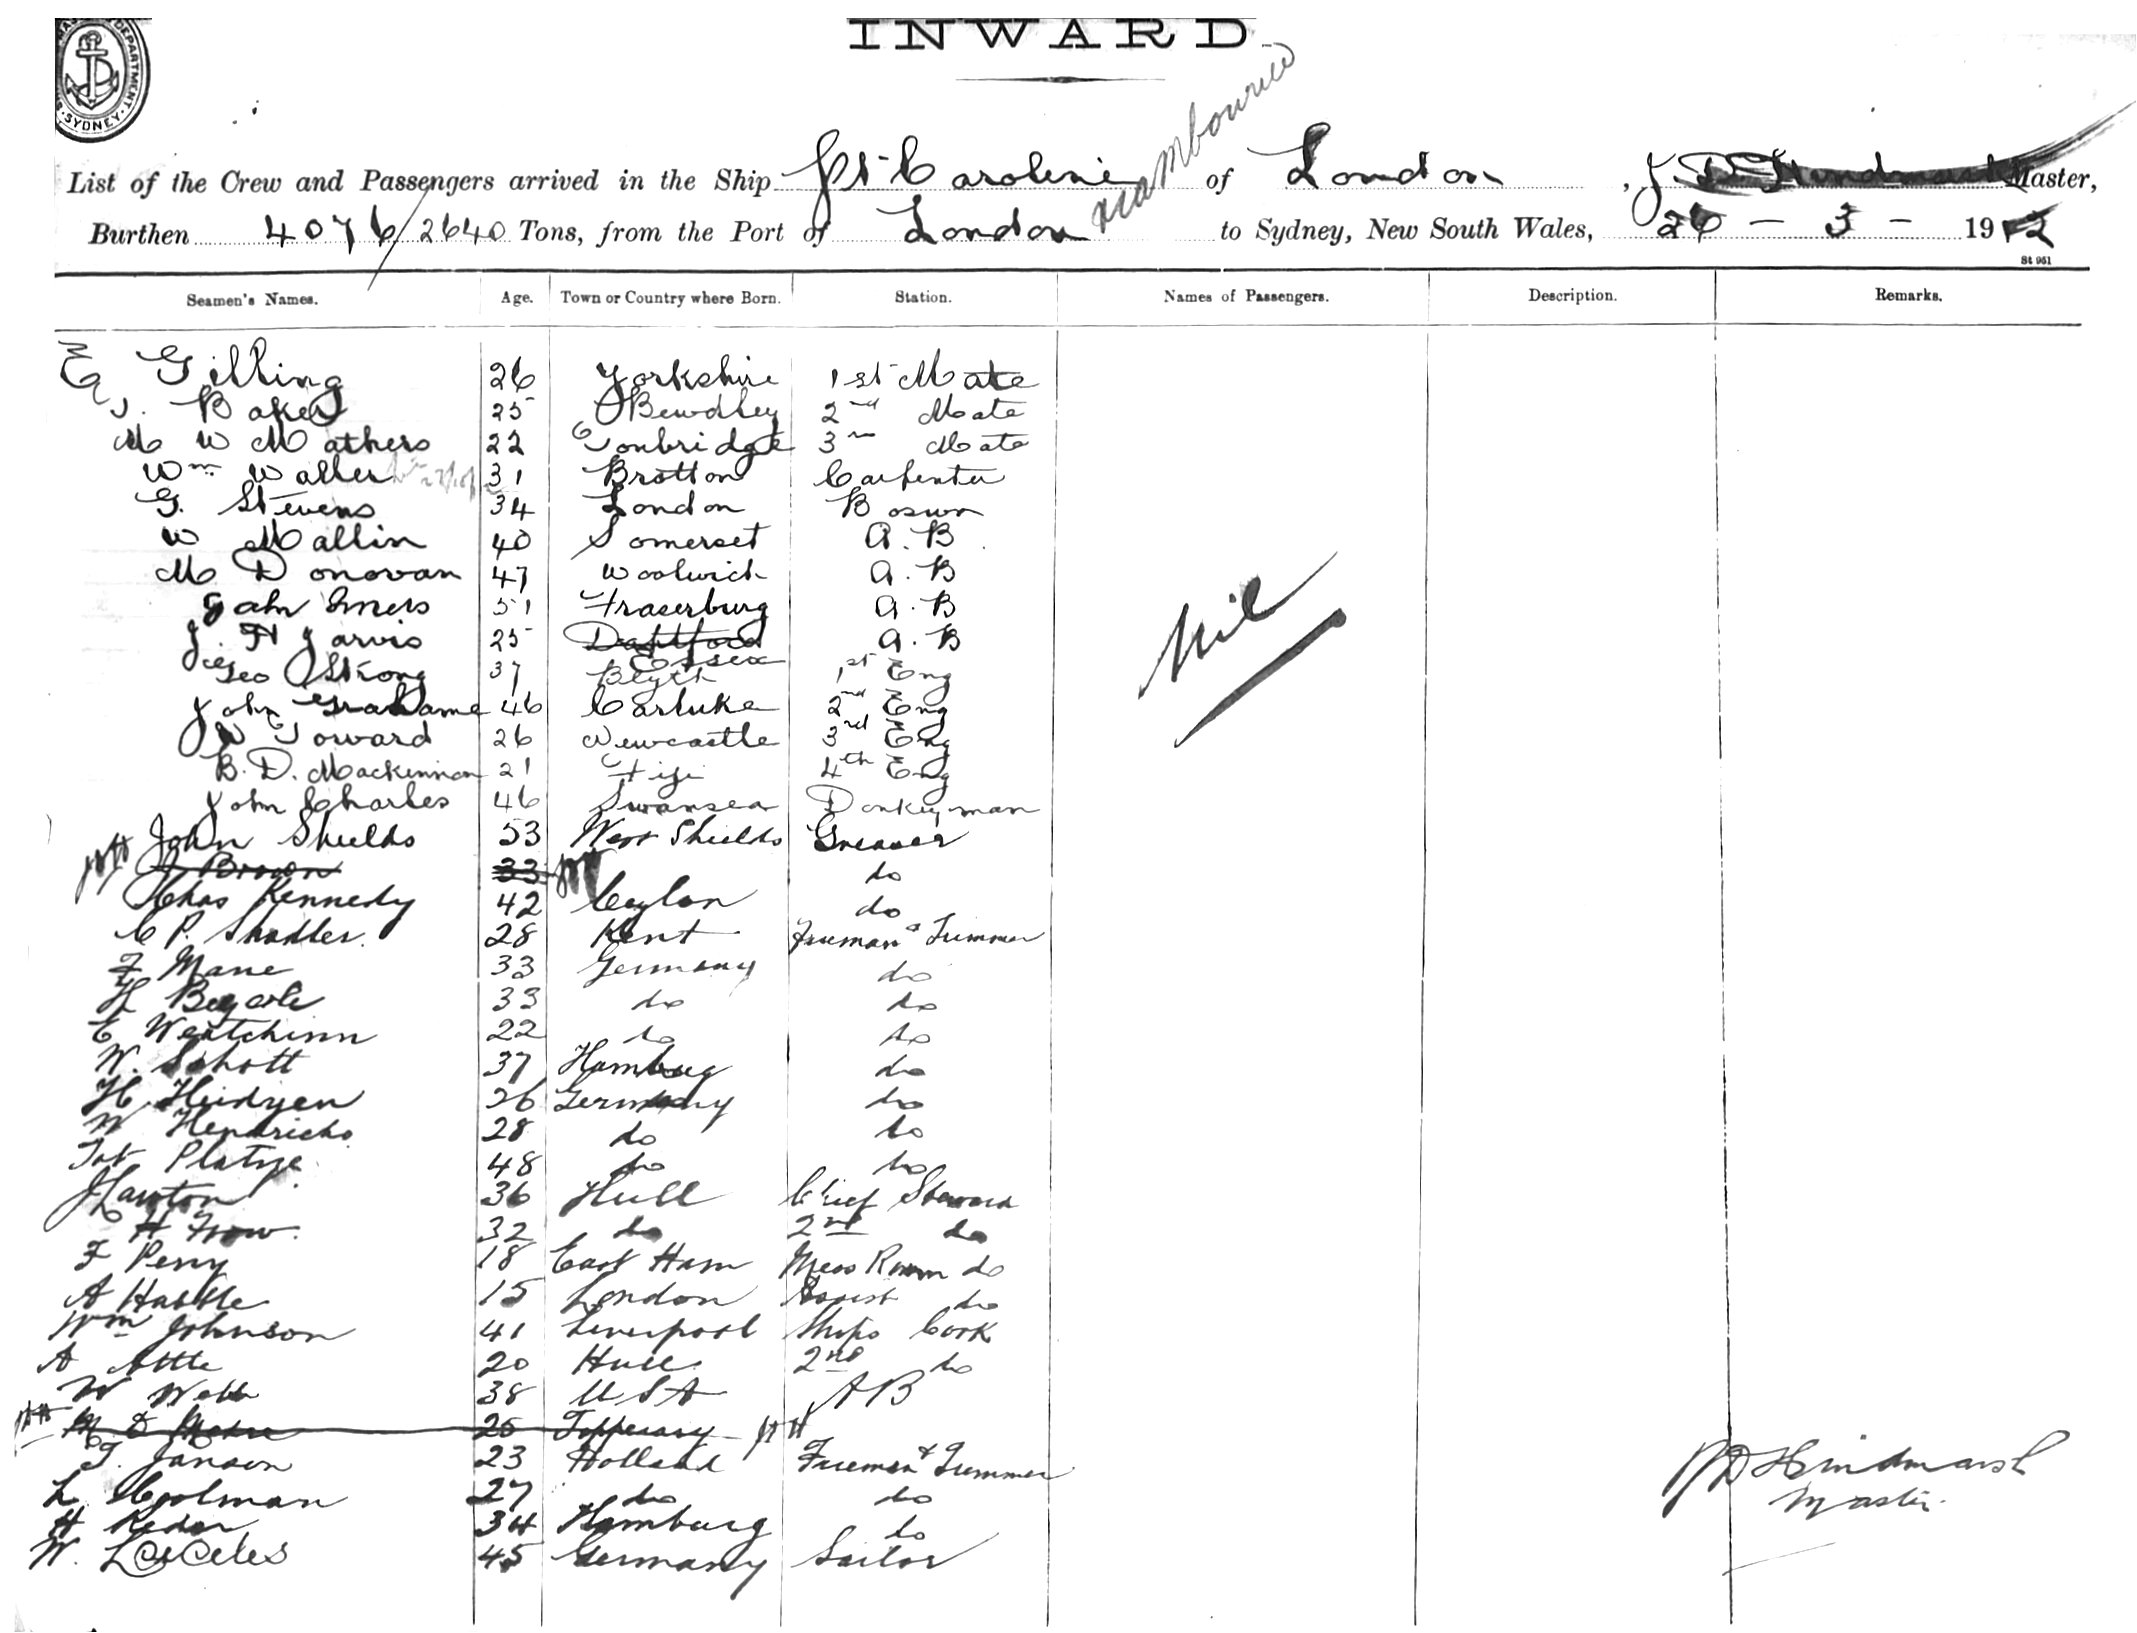 INWARD
DEPARTMENT SYDNEY
List of the Crew and Passengers arrived in the Ship Caroline of London, J. D. Hindmarsh Master,
via Melbourne
Burthen 4076/2640 Tons, from the Port of London to Sydney, New South Wales, 26 - 3 - 1912
St 961
Seamen's Names. Age. Town or Country where Born. Station. Names of Passengers. Description. Remarks.
E Gilling 26 Yorkshire 1st Mate
J. Baker 25 Bewdley 2nd Mate
M W Mathers 22 Tonbridge 3rd Mate
Wm Waller 31 Brotton Carpenter
G. Stevens 34 London Bosun
W Mallin 40 Somerset A. B
M Donovan 47 Woolwich A. B
John 51 Fraserburg A. B
J. H Jarvis 25 Dartford A. B
Essex
Geo Strong 37 Blyth 1st Eng
John Grahame 46 Carluke 2nd Eng
W Toward 26 Newcastle 3rd Eng
B. D. Mackinnon 21 Fiji 4th Eng
John Charles 46 Swansea Donkeyman
John Shields 53 West Shields Greaser
J Brown 33 do
Chas Kennedy 42 Ceylon do
C P. Shadler. 28 Kent Fireman & Trimmer
F Mane 33 Germany do
H 33 do do
E 22 do do
W. Schott 37 Hamburg do
H. Heidgen 26 Germany do
W Hendricks 28 do do
48 do do
J Lawton 36 Hull Chief Steward
H Frow. 32 do 2nd do
F Perry 18 East Ham Mess Room do
A 15 London Assist do
Wm Johnson 41 Liverpool Ships Cook
A 20 Hull 2nd do
W Webb 38 U S A A B
M D 25 Tipperary
T. Janson 23 Holland Fireman & Trimmer
L. Coolman 27 do do
H Reder 34 Hamburg do
W. 45 Germany Sailor
Nil
J D Hindmarsh
Master.